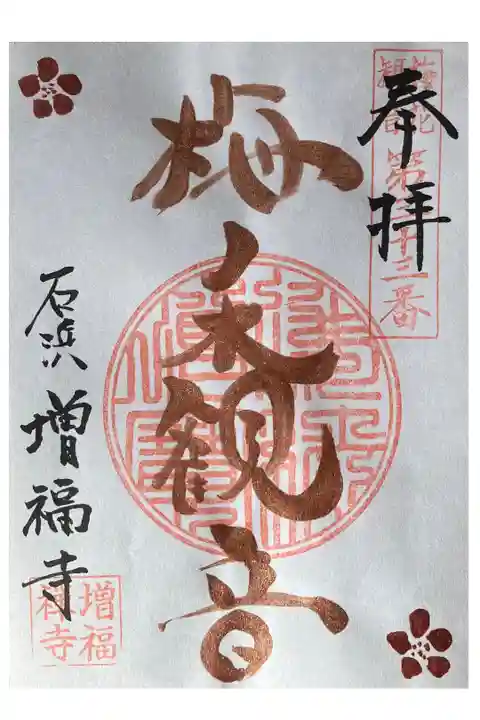 奉拝
観音
第三十三番
梅
観音
石浜 増福寺
増福
禅寺